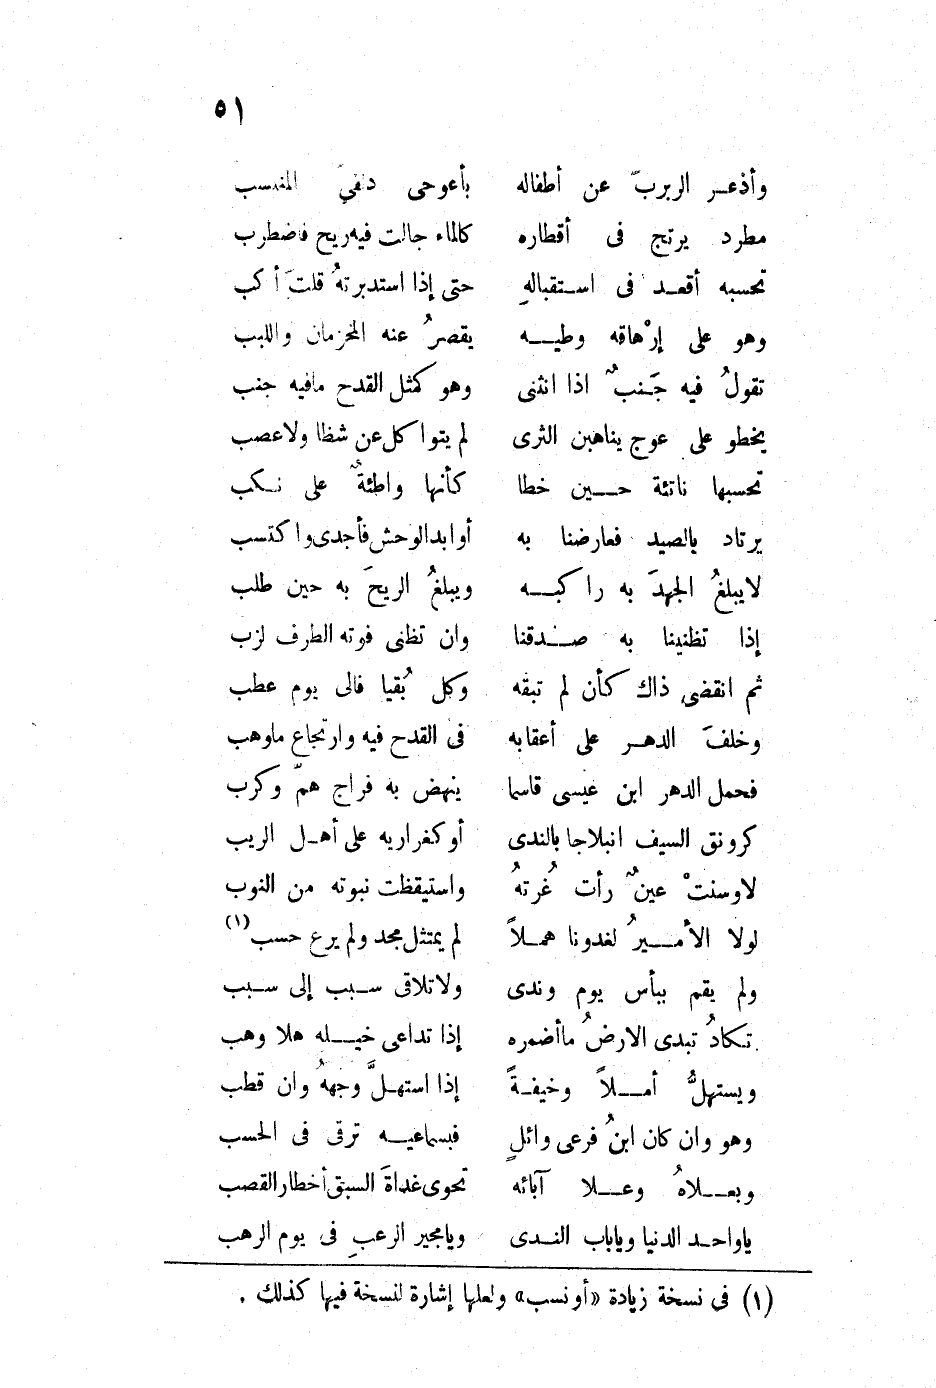 ٥١
وأذعر الربربَّ عن أطفاله بأعوجى دلفىّ المنتسب
مطرد يرتج فى أقطاره كالماء جالت فيه ريح فاضطرب
تحسبه أقعد فى استقبالهِ حتى إذا استدبرتهُ قلتَ أكب
وهو على إرْهاقه وطيه يقصرُ عنه المحزمان واللبب
تقولُ فيه جَنبٌ اذا انثنى وهو كمثل القدح مافيه جنب
يخطو على عوج يناهبن الثرى لم يتواكل عن شظا ولاعصب
تحسبها ناتئة حين خطا كأنها واطئةٌ على نكب
يرتاد بالصيد فعارضنا به أوابد الوحش فأجدى واكتسب
لايبلغُ الجهدَ به راكبه ويبلغُ الريحَ به حين طلب
إذا تظنينا به صدقنا وان تظنى فوته الطرف لزب
ثم انقضى ذاك كأن لم تبقه وكل بُقيا فالى يوم عطب
وخلفَ الدهر على أعقابه فى القدح فيه وارتجاع ماوهب
فحمل الدهر ابن عيسى قاسما ينهض به فراج همّ وكرب
كرونق السيف انبلاجا بالندى أو كغراريه على أهل الريب
لاوسنتْ عينٌ رأت غُرتهُ واستيقظت نبوته من النوب
لولا الأميرُ لغدونا هملاً لم يمتثل مجد ولم يرع حسب (١)
ولم يقم ببأس يوم وندى ولاتلاقى سبب إلى سبب
تكادُ تبدى الارضُ ماأضمره إذا تداعى خيله هلا وهب
ويستهلُّ أملاً وخيفةً إذا استهلَّ وجههُ وان قطب
وهو وان كان ابنُ فرعى وائلٍ فبسماعيه ترقى فى الحسب
وبعلاهُ وعلا آبائه تحوى غداةَ السبق أخطار القصب
ياواحد الدنيا وياباب الندى ويامجير الرعبِ فى يوم الرهب
(١) فى نسخة زيادة «أو نسب» ولعلها إشارة لنسخة فيها كذلك .